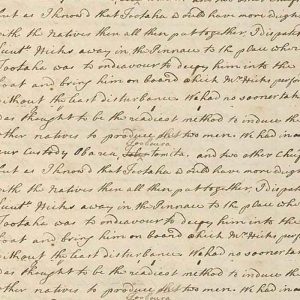 ut as I know'd that Tootaha would have more weigh
with the Natives then all these put together, I dispat
Lieut Hicks away in the Pinnace to the place wher
Tootaha was to endeavour to decoy him into the
Boat and bring him on board which Mr Hicks perfor
without the least disturbance We had no sooner take
was thought to be the readiest method to induce the
other natives to produce the two men. We had no
Tooboura
our Custody Obarea, Tomita, and two other Chie
ut as I know'd that Tootaha would have more weigh
with the Natives then all these put together, I dispat
Lieut Hicks away in the Pinnace to the place wher
Tootaha was to endeavour to decoy him into the
Boat and bring him on board which Mr Hicks perfor
without the least disturbance We had no sooner take
was thought to be the readiest method to induce the
other natives to produce the two men. We had no
Tooboura